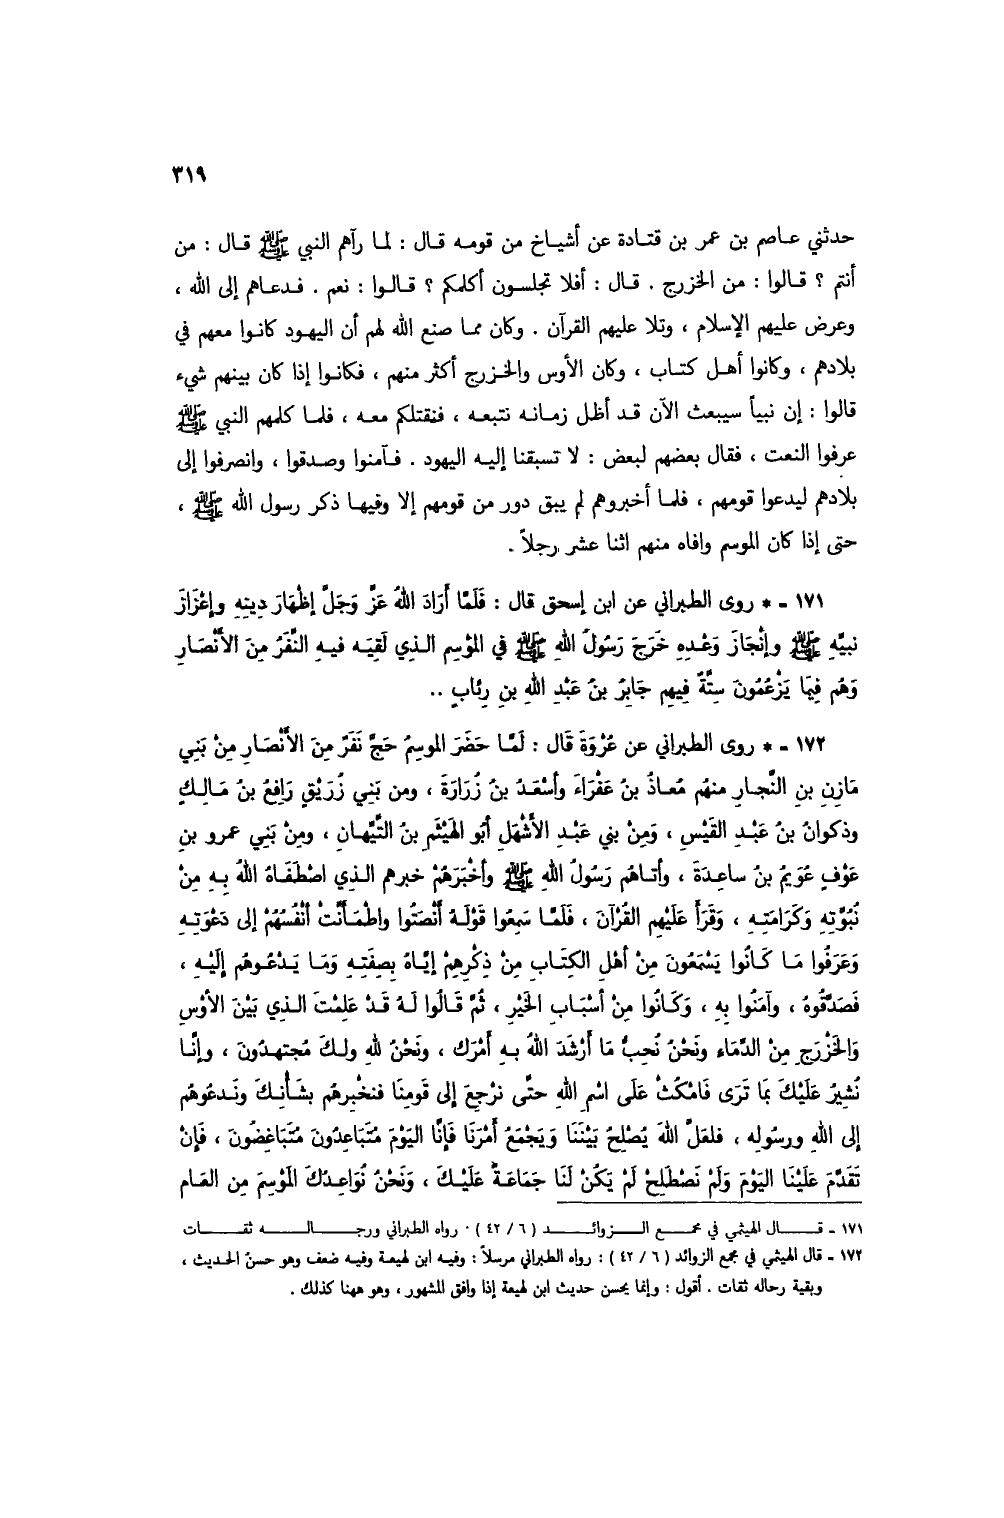 ٣١٩
حدثني عاصم بن عمر بن قتادة عن أشياخ من قومه قال : لما رآهم النبي ﷺ قال : من
أنتم ؟ قالوا : من الخزرج . قال : أفلا تجلسون أكلمكم ؟ قالوا : نعم . فدعاهم إلى الله ،
وعرض عليهم الإسلام ، وتلا عليهم القرآن . وكان مما صنع الله لهم أن اليهود كانوا معهم في
بلادهم ، وكانوا أهل كتاب ، وكان الأوس والخزرج أكثر منهم ، فكانوا إذا كان بينهم شيء
قالوا : إن نبياً سيبعث الآن قد أظل زمانه نتبعه ، فنقتلكم معه ، فلما كلمهم النبي ﷺ
عرفوا النعت ، فقال بعضهم لبعض : لا تسبقنا إليه اليهود . فآمنوا وصدقوا ، وانصرفوا إلى
بلادهم ليدعوا قومهم ، فلما أخبروهم لم يبق دور من قومهم إلا وفيها ذكر رسول الله ﷺ ،
حتى إذا كان الموسم وافاه منهم اثنا عشر رجلاً .
١٧١ - * روى الطبراني عن ابن إسحق قال : فَلَمَّا أَرَادَ اللهُ عَزَّ وَجَلَّ إظْهَارَ دِينِهِ وإعْزَازَ
نبيَّهِ ﷺ وإنْجَازَ وَعْدِهِ خَرَجَ رَسُولُ اللهِ ﷺ في المَوْسِمِ الذي لَقِيَه فيهِ النَّفَرُ مِنَ الأنْصَارِ
وَهُم فِيمَا يَزْعُمُونَ سِتَّةٌ فيهِم جَابِرُ بنُ عَبْدِ اللهِ بنِ رِئابٍ ..
١٧٢ - * روى الطبراني عن عُرْوَةَ قَال : لَمَّا حَضَرَ الموسِمُ حَجَّ نَفَرٌ مِنَ الأنْصَارِ مِنْ بَنِي
مَازِنِ بنِ النَّجارِ منهُم مُعاذُ بنُ عَفْرَاءَ وأسْعَدُ بنُ زُرَارَةَ ، ومن بَنِي زُرَيْقٍ رَافِعُ بنُ مَالِكٍ
وذكوانُ بنُ عَبْدِ القَيْسِ ، وَمِنْ بنِي عَبْدِ الأشْهَلِ أبُو الهَيْثَمِ بنُ التَّيِّهانِ ، ومِنْ بَنِي عمرو بنِ
عَوْفٍ عُوَيمُ بنُ ساعِدَةَ ، وأتاهُم رَسُولُ اللهِ ﷺ وأخْبَرَهُمْ خبرهم الذي اصْطَفَاهُ اللهُ بِهِ مِنْ
نُبُوَّتِهِ وَكَرَامَتِهِ ، وَقَرَأ عَلَيْهِمِ القُرْآنَ ، فَلَمَّا سَمِعُوا قَوْلَهُ أنْصَتُوا واطْمَأنَّتْ أنْفُسُهُمْ إلى دَعْوَتِهِ
وَعَرَفُوا مَا كَانُوا يَسْمَعُونَ مِنْ أهْلِ الكِتَابِ مِنْ ذِكْرِهِمْ إيَّاهُ بِصِفَتِهِ وَمَا يَدْعُوهُم إلَيْهِ ،
فَصَدَّقُوهُ ، وآمَنُوا بِهِ ، وَكَانُوا مِنْ أسْبَابِ الخَيْرِ ، ثُمَّ قَالُوا لَهُ قَدْ عَلِمْتَ الذي بَيْنَ الأوْسِ
وَالخَزْرَجِ مِنْ الدِّمَاءِ ونَحْنُ نُحِبُّ مَا أرْشَدَ اللهُ بِهِ أمْرَك ، ونَحْنُ للهِ ولكَ مُجتهدُونَ ، وإنَّا
نُشِيرُ عَلَيْكَ بمَا تَرَى فَامْكُثْ عَلَى اسْمِ اللهِ حتَّى نرْجِعَ إلى قَومِنَا فنخْبِرهُم بشَأنِكَ ونَدعُوهُم
إلى اللهِ ورسُولِه ، فلعَلَّ اللهَ يُصْلِحُ بَيْنَنَا وَيَجْمَعُ أمْرَنَا فَإنَّا اليَوْمَ مُتَبَاعِدُونَ مُتَبَاغِضُونَ ، فَإنْ
تَقَدَّمَ عَلَيْنَا اليَوْمَ وَلَمْ نَصْطَلِحْ لَمْ يَكُنْ لَنَا جَمَاعَةٌ عَلَيْكَ ، وَنَحْنُ نُوَاعِدُكَ المَوْسِمَ مِن العَام
١٧١ - قال الهيثمي في مجمع الزوائد ( ٦ / ٤٢ ) . رواه الطبراني ورجاله ثقات
١٧٢ - قال الهيثمي في مجمع الزوائد ( ٦ / ٤٢ ) : رواه الطبراني مرسلاً : وفيه ابن لهيعة وفيه ضعف وهو حسنُ الحديث ،
وبقية رحاله ثقات . أقول : وإنما يحسن حديث ابن لهيعة إذا وافق المشهور ، وهو ههنا كذلك .